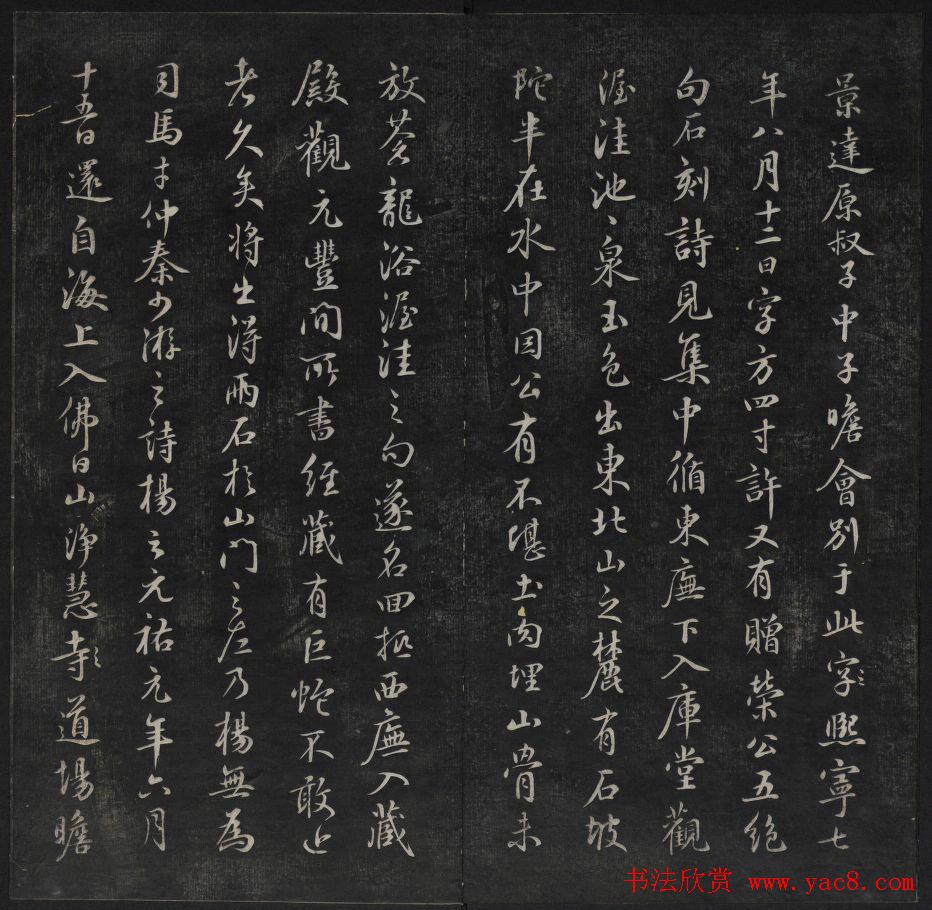 景達原叔子中子瞻會別于此字熙寧七
年八月十二日字方四寸許又有贈榮公五絶
句石刻詩見集中循東廡下入庫堂觀
渥洼池〻泉玉色出東北山之麓有石坡
陀半在水中因公有不堪土肉埋山骨未
放蒼龍浴渥洼之句遂名回抵西廡入藏
殿觀元豐間所書經藏有巨蛇不敢近
者久矣將出得兩石於山門之左乃楊無為
司馬才仲秦少游之詩楊之元祐元年六月
十五日還自海上入佛日山淨慧寺道場瞻
书法欣赏 www.yac8.com